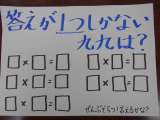 答えが1つしかない
九九は?
□×□=□ □×□=□
□×□=□ □×□=□
□×□=□
ぜんぶで5つ言えるかな?